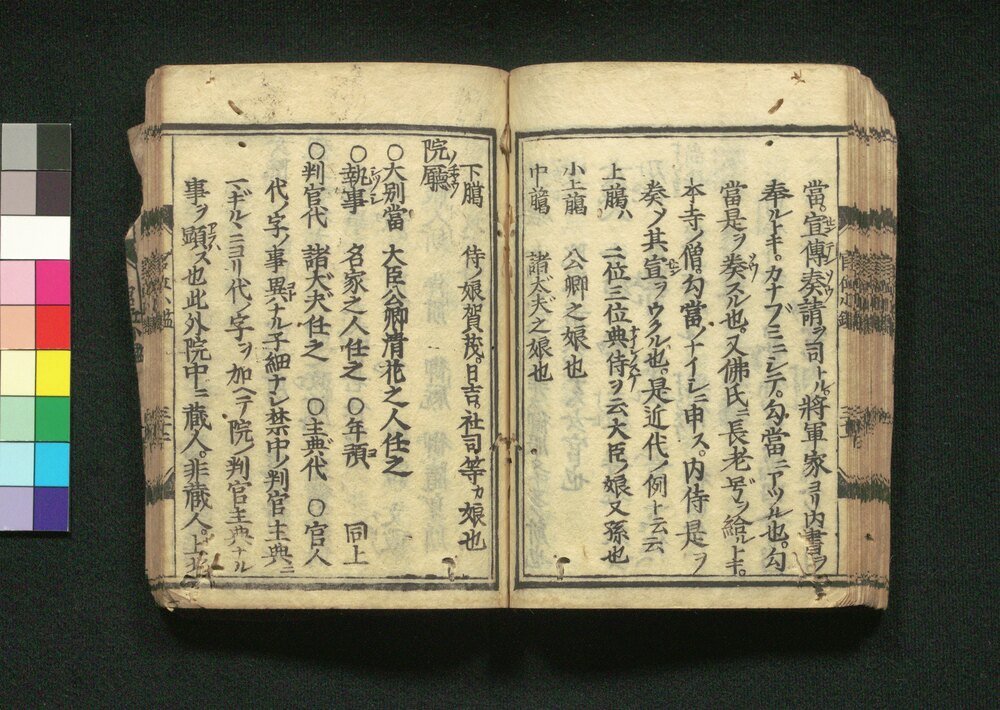 當。宣傳奏請ヲ司トル。將軍家ヨリ內書ヲ
奉ルトキ。カナブミニシテ。勾當ニアツル也。勾
當是ヲ奏スル也。又佛氏ニ長老号ヲ給トキ。
本寺ノ僧。勾當ノナイシニ申ス。内侍是ヲ
奏ノ其宣ヲウクル也。是近代ノ例ト云云
上﨟ハ 二位三位典侍ヲ云大臣ノ娘又孫也
小上﨟 公卿之娘也
中﨟 諸大夫之娘也
下﨟 侍ノ娘賀茂。日吉。社司等カ娘也
院廳
○大別當 大臣公卿清花之人任之
○執事 名家之人任之 ○年預 同上
○判官代 諸大夫任之 ○主典代 ○官人
代ノ字ノ事異ナル子細ナシ禁中ノ判官主典ニ
マギルヽニヨリ代ノ字ヲ加ヘテ院ノ判官主典ナル
事ヲ顕ス也此外院中ニ蔵人。非蔵人。上北